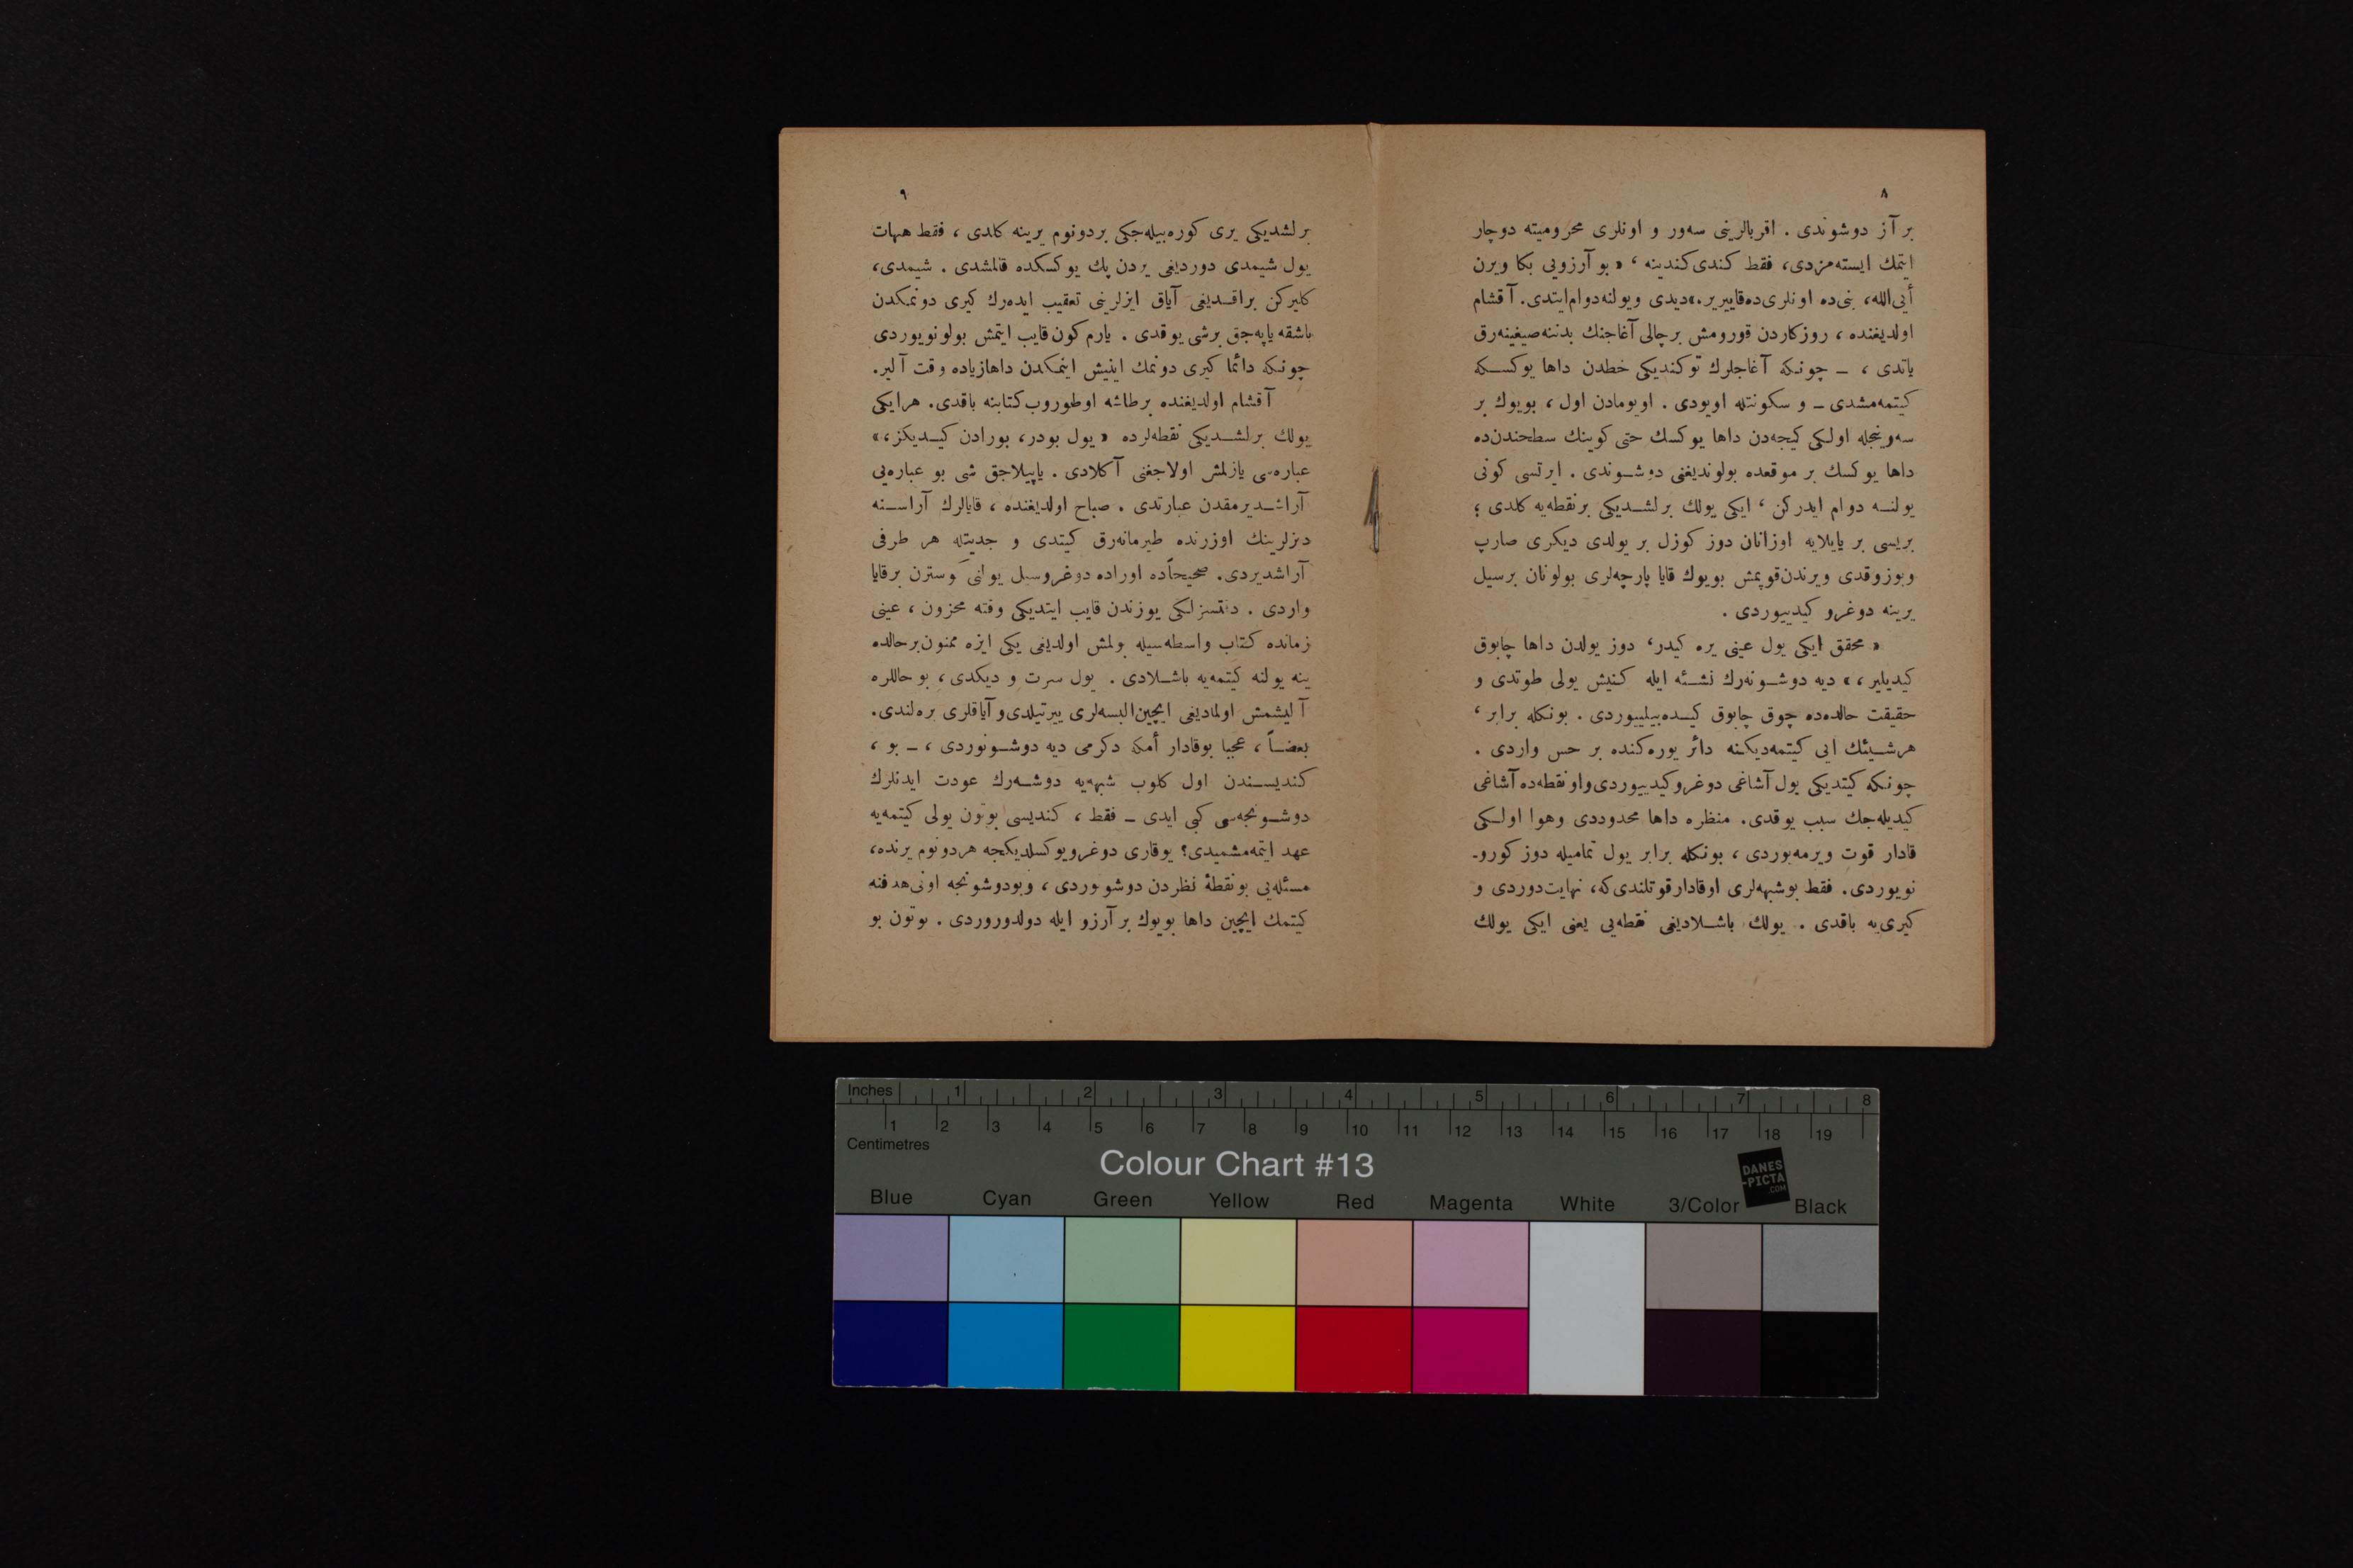 ٨
بر آز دوشوندی . اقربالرینی سه‌ور و اونلری محرومیته دوچار
ایتمك ایسته‌مزدی، فقط كندی كندینه ، « بو آرزویی بكا ویرن
أبی الله، بنی ده اونلری ده قاییریر.» دیدی و یولنه دوام ایتدی. آقشام
اولدیغنده ، روزكاردن قورومش بر چالی آغاجنك بدننه صیغینه‌رق
یاتدی ، ـ چونكه آغاجلرك توكندیكی خطدن داها یوكسكه
كیتمه‌مشدی ـ و سكونتله اویودی . اویومادن اول ، بویوك بر
سه‌وینجله اولكی كیجه‌دن داها یوكسك حتی كوینك سطحندن ده
داها یوكسك بر موقعده بولوندیغنی دوشوندی . ایرتسی كونی
یولنه دوام ایدركن ، ایكی یولك برلشدیكی بر نقطه‌یه كلدی ؛
بریسی بر یایلایه اوزانان دوز كوزل بر یولدی دیكری صارپ
وبوزوقدی ویرندن قوپمش بویوك قایا پارچه‌لری بولونان برسیل
یرینه دوغرو كیدییوردی .
« محقق ایكی یول عینی یره كیدر، دوز یولدن داها چابوق
كیدیلیر ، » دیه دوشونه‌رك نشئه ایله كنیش یولی طوتدی و
حقیقت حالده‌ده چوق چابوق كیده‌بیلییوردی . بونكله برابر ،
هرشیئك ایی كیتمه‌دیكنه دائر یوره‌كنده بر حس واردی .
چونكه كیتدیكی یول آشاغی دوغرو كیدییوردی واو نقطه‌ده آشاغی
كیدیله‌جك سبب یوقدی. منظره داها محدوددی وهوا اولكی
قادار قوت ویرمه‌یوردی ، بونكله برابر یول تمامیله دوز كورو-
نویوردی. فقط بوشبهه‌لری اوقادار قوتلندی كه، نهایت دوردی و
كیری‌یه باقدی . یولك باشلادیغی نقطه‌یی یعنی ایكی یولك
٩
برلشدیكی یری كوره‌بیله‌جكی بردونوم یرینه كلدی ، فقط هیهات
یول شیمدی دوردیغی یردن پك یوكسكده قالمشدی . شیمدی،
كلیركن براقدیغی آیاق ایزلرینی تعقیب ایده‌رك كیری دونمكدن
باشقه یاپه‌جق برشی یوقدی . یارم كون قایب ایتمش بولونویوردی
چونكه دائما كیری دونمك اینیش اینمكدن داها زیاده وقت آلیر.
آقشام اولدیغنده بر طاشه اوطوروب كتابنه باقدی. هر ایكی
یولك برلشدیكی نقطه‌لرده « یول بودر، بورادن كیدیكز، »
عباره‌سی یازلمش اولاجغنی آكلادی . یاپیلاجق شی بو عباره‌یی
آراشدیرمقدن عبارتدی . صباح اولدیغنده ، قایالرك آراسنه
دیزلرینك اوزرنده طیرمانه‌رق كیتدی و جدیتله هر طرفی
آراشدیردی. صحیحاً ده اوراده دوغرو سبل یولنی كوسترن بر قایا
واردی . دقتسزلكی یوزندن قایب ایتدیكی وقته محزون ، عینی
زمانده كتاب واسطه‌سیله بولمش اولدیغی یكی ایزه ممنون بر حالده
ینه یولنه كیتمه‌یه باشلادی . یول سرت و دیكدی ، بو حاللره
آلیشمش اولمادیغی ایچین البسه‌لری ییرتیلدی و آیاقلری بره‌لندی.
بعضاً ، عجبا بوقادار أمكه دكرمی دیه دوشونوردی ، ـ بو ،
كندیسندن اول كلوب شبهه‌یه دوشه‌رك عودت ایدنلرك
دوشونجه‌سی كبی ایدی ـ فقط ، كندیسی بوتون یولی كیتمه‌یه
عهد ایتمه‌مشمیدی؟ یوقاری دوغرو یوكسلدیكجه هر دونوم یرنده،
مسئله‌یی بو نقطهٔ نظردن دوشونوردی ، وبودوشونجه اونی هدفنه
كیتمك ایچین داها بویوك بر آرزو ایله دولدوروردی . بوتون بو
Inches 1 2 3 4 5 6 7 8
1 2 3 4 5 6 7 8 9 10 11 12 13 14 15 16 17 18 19
Centimetres
Colour Chart #13
DANES
-PICTA
.COM
Blue Cyan Green Yellow Red Magenta White 3/Color Black